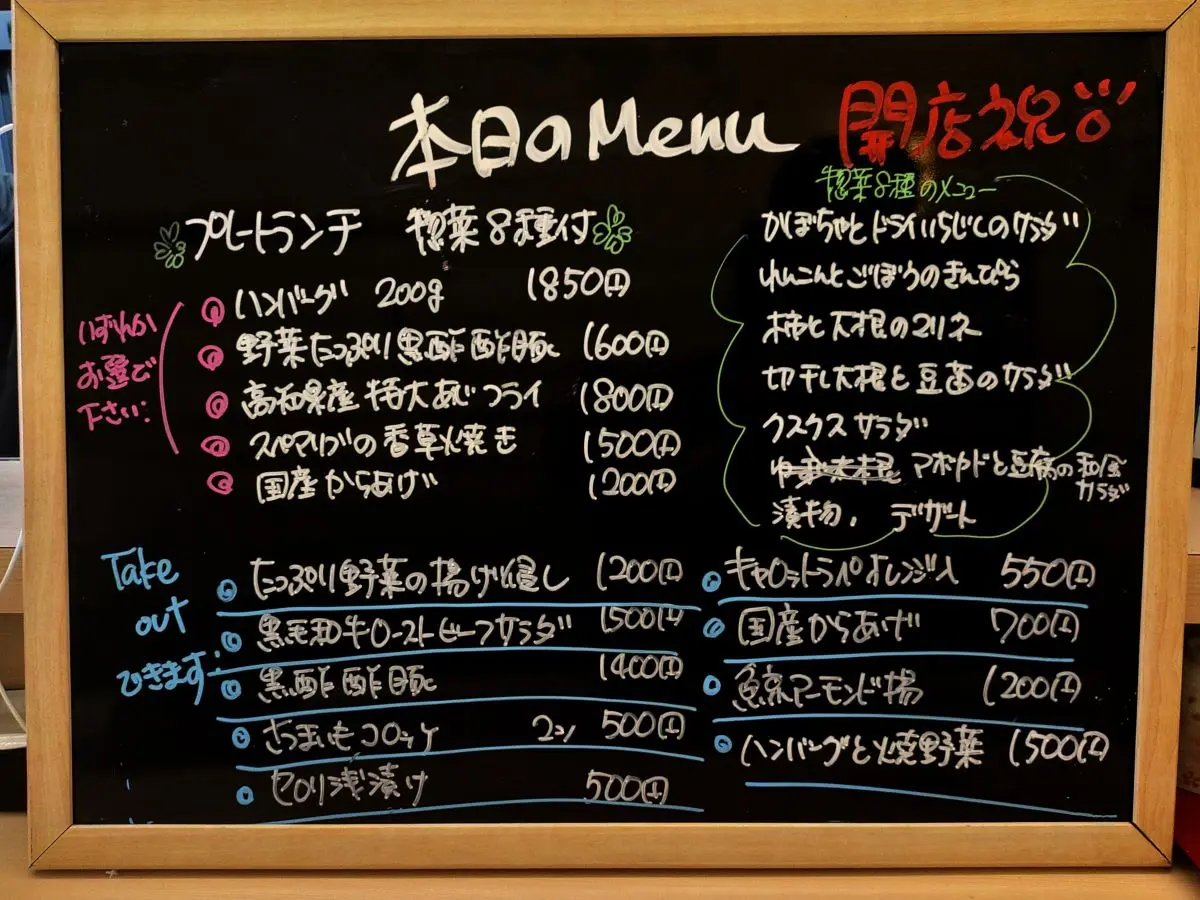 本日のMenu 開店祝
プレートランチ 惣菜8種付
いずれか
お選びで
下さい:
ハンバーグ 200g 1850円
野菜たっぷり黒酢酢豚 1600円
高知県産 特大あじフライ 1800円
スペアリブの香草焼き 1500円
国産からあげ 1200円
惣菜8種のメニュー
かぼちゃとドライいちじくのサラダ
れんこんとごぼうのきんぴら
柿と大根のマリネ
切干し大根と豆苗のサラダ
クスクスサラダ
アボカドと豆腐の和風
サラダ
漬物、 デザート
Take
out
できます:
たっぷり野菜の揚げ浸し 1200円
黒毛和牛ローストビーフサラダ 1500円
黒酢酢豚 1400円
さつまいもコロッケ 2コ 500円
セロリ浅漬け 500円
キャロットラペオレンジ入 550円
国産からあげ 700円
アーモンド揚 1200円
ハンバーグと焼野菜 1500円